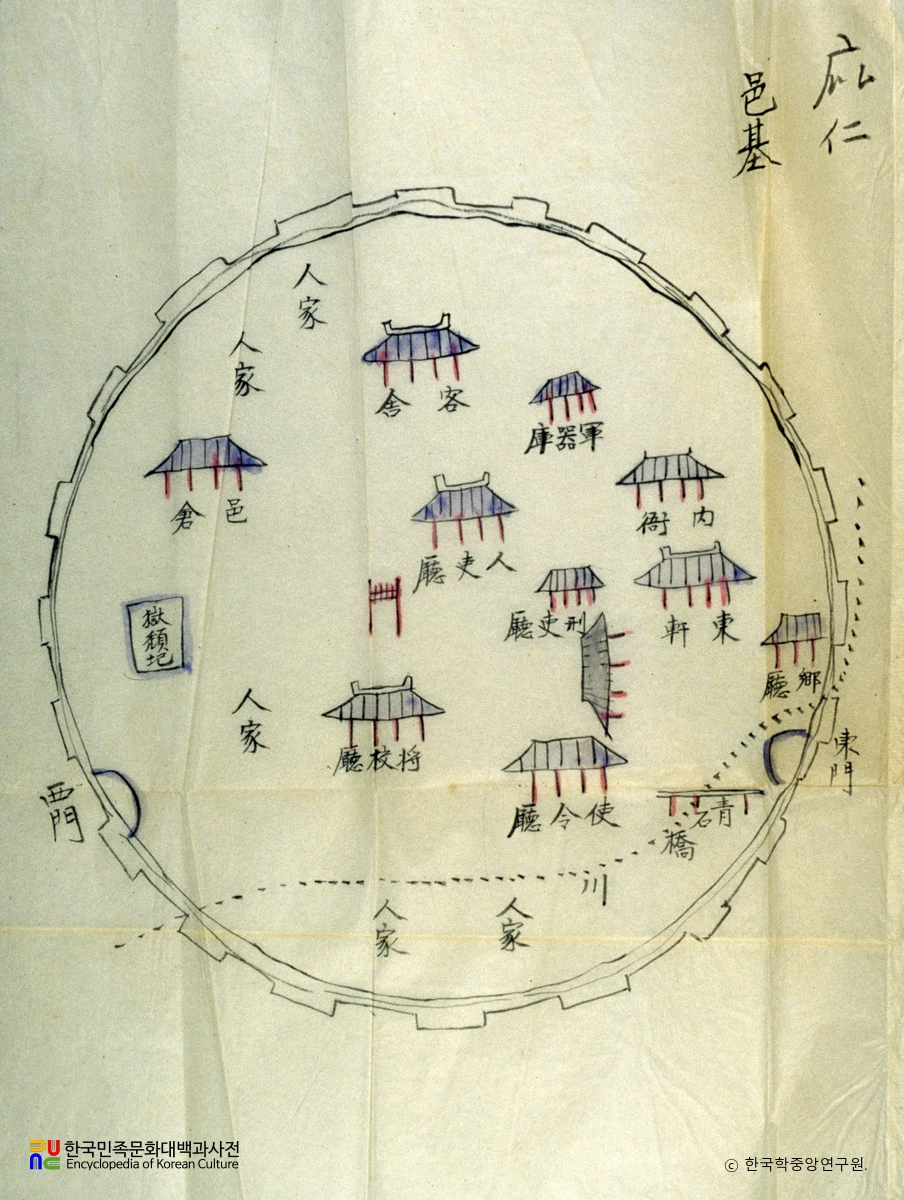 庇仁
邑基
人家
人家
客舍
軍器庫
邑倉
内衙
人吏廳
刑吏廳
東軒
獄頹圮
鄉廳
人家
将校廳
東門
西門
使令廳
青石橋
川
人家
人家
한국민족문화대백과사전
Encyclopedia of Korean Culture
ⓒ 한국학중앙연구원.